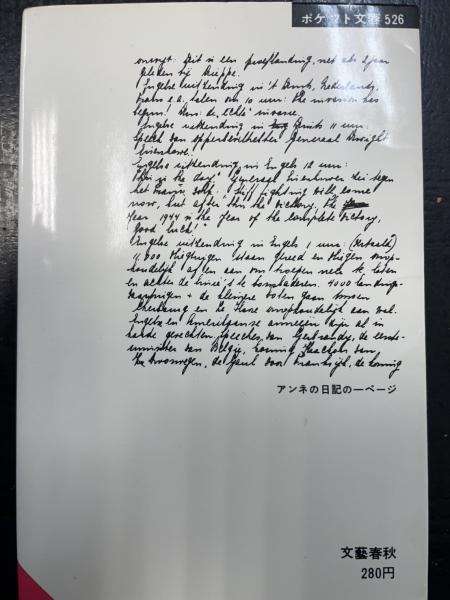 ポケット文春 526
Dit is een proeflanding, net als 2 jaar
geleden bij Dieppe.
Engelse uitzending in 't Duits, Nederlands,
Frans e.a. talen om 10 uur: the invasion has
begun! Dus: de „echte" invasie.
Engelse uitzending in Duits 11 uur:
speech van opperbevelhebber Generaal Dwight
Eisenhower.
Engelse uitzending in Engels 12 uur:
This is the day. Generaal Eisenhower zei tegen
het Franse volk: Stiff fighting will come
now, but after this the victory. The
Year 1944 is the Year of the complete victory,
good luck!
Engelse uitzending in Engels 1 uur: (vertaald)
11.000 vliegtuigen staan gereed en vliegen
af en aan om troepen neer te laten
en achter de linie's te bombarderen. 4000 landings-
vaartuigen + de kleinere boten gaan tussen
Cherbourg en Le Havre aan wal.
Engelse en Amerikaanse zijn al in
harde gevechten. Speeches van Gerbrandy, de eerste-
minister van België, Koning Haakon van
Noorwegen, de Gaul voor Frankrijk, de koning
アンネの日記の一ページ
文藝春秋
280円